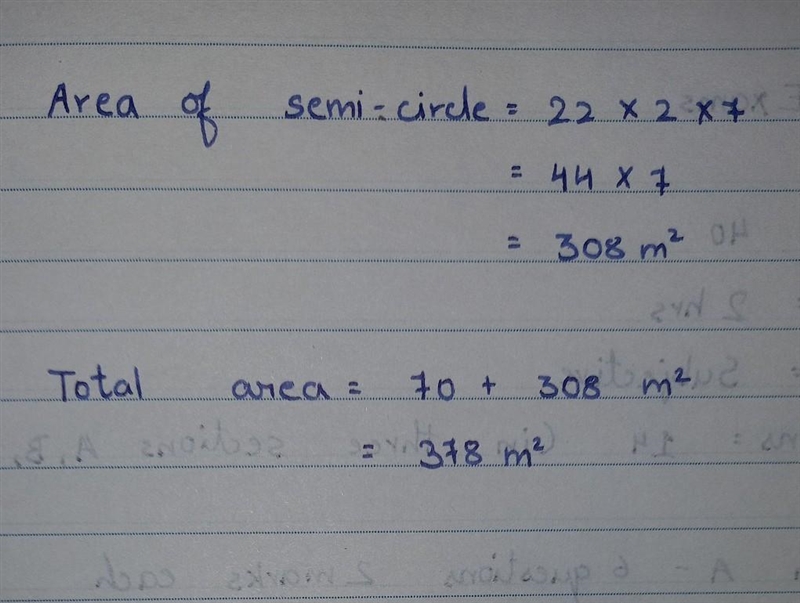 Area of semi-circle = 22 × 2 × 7
= 44 × 7
= 308 m²
Total area = 70 + 308 m²
= 378 m²